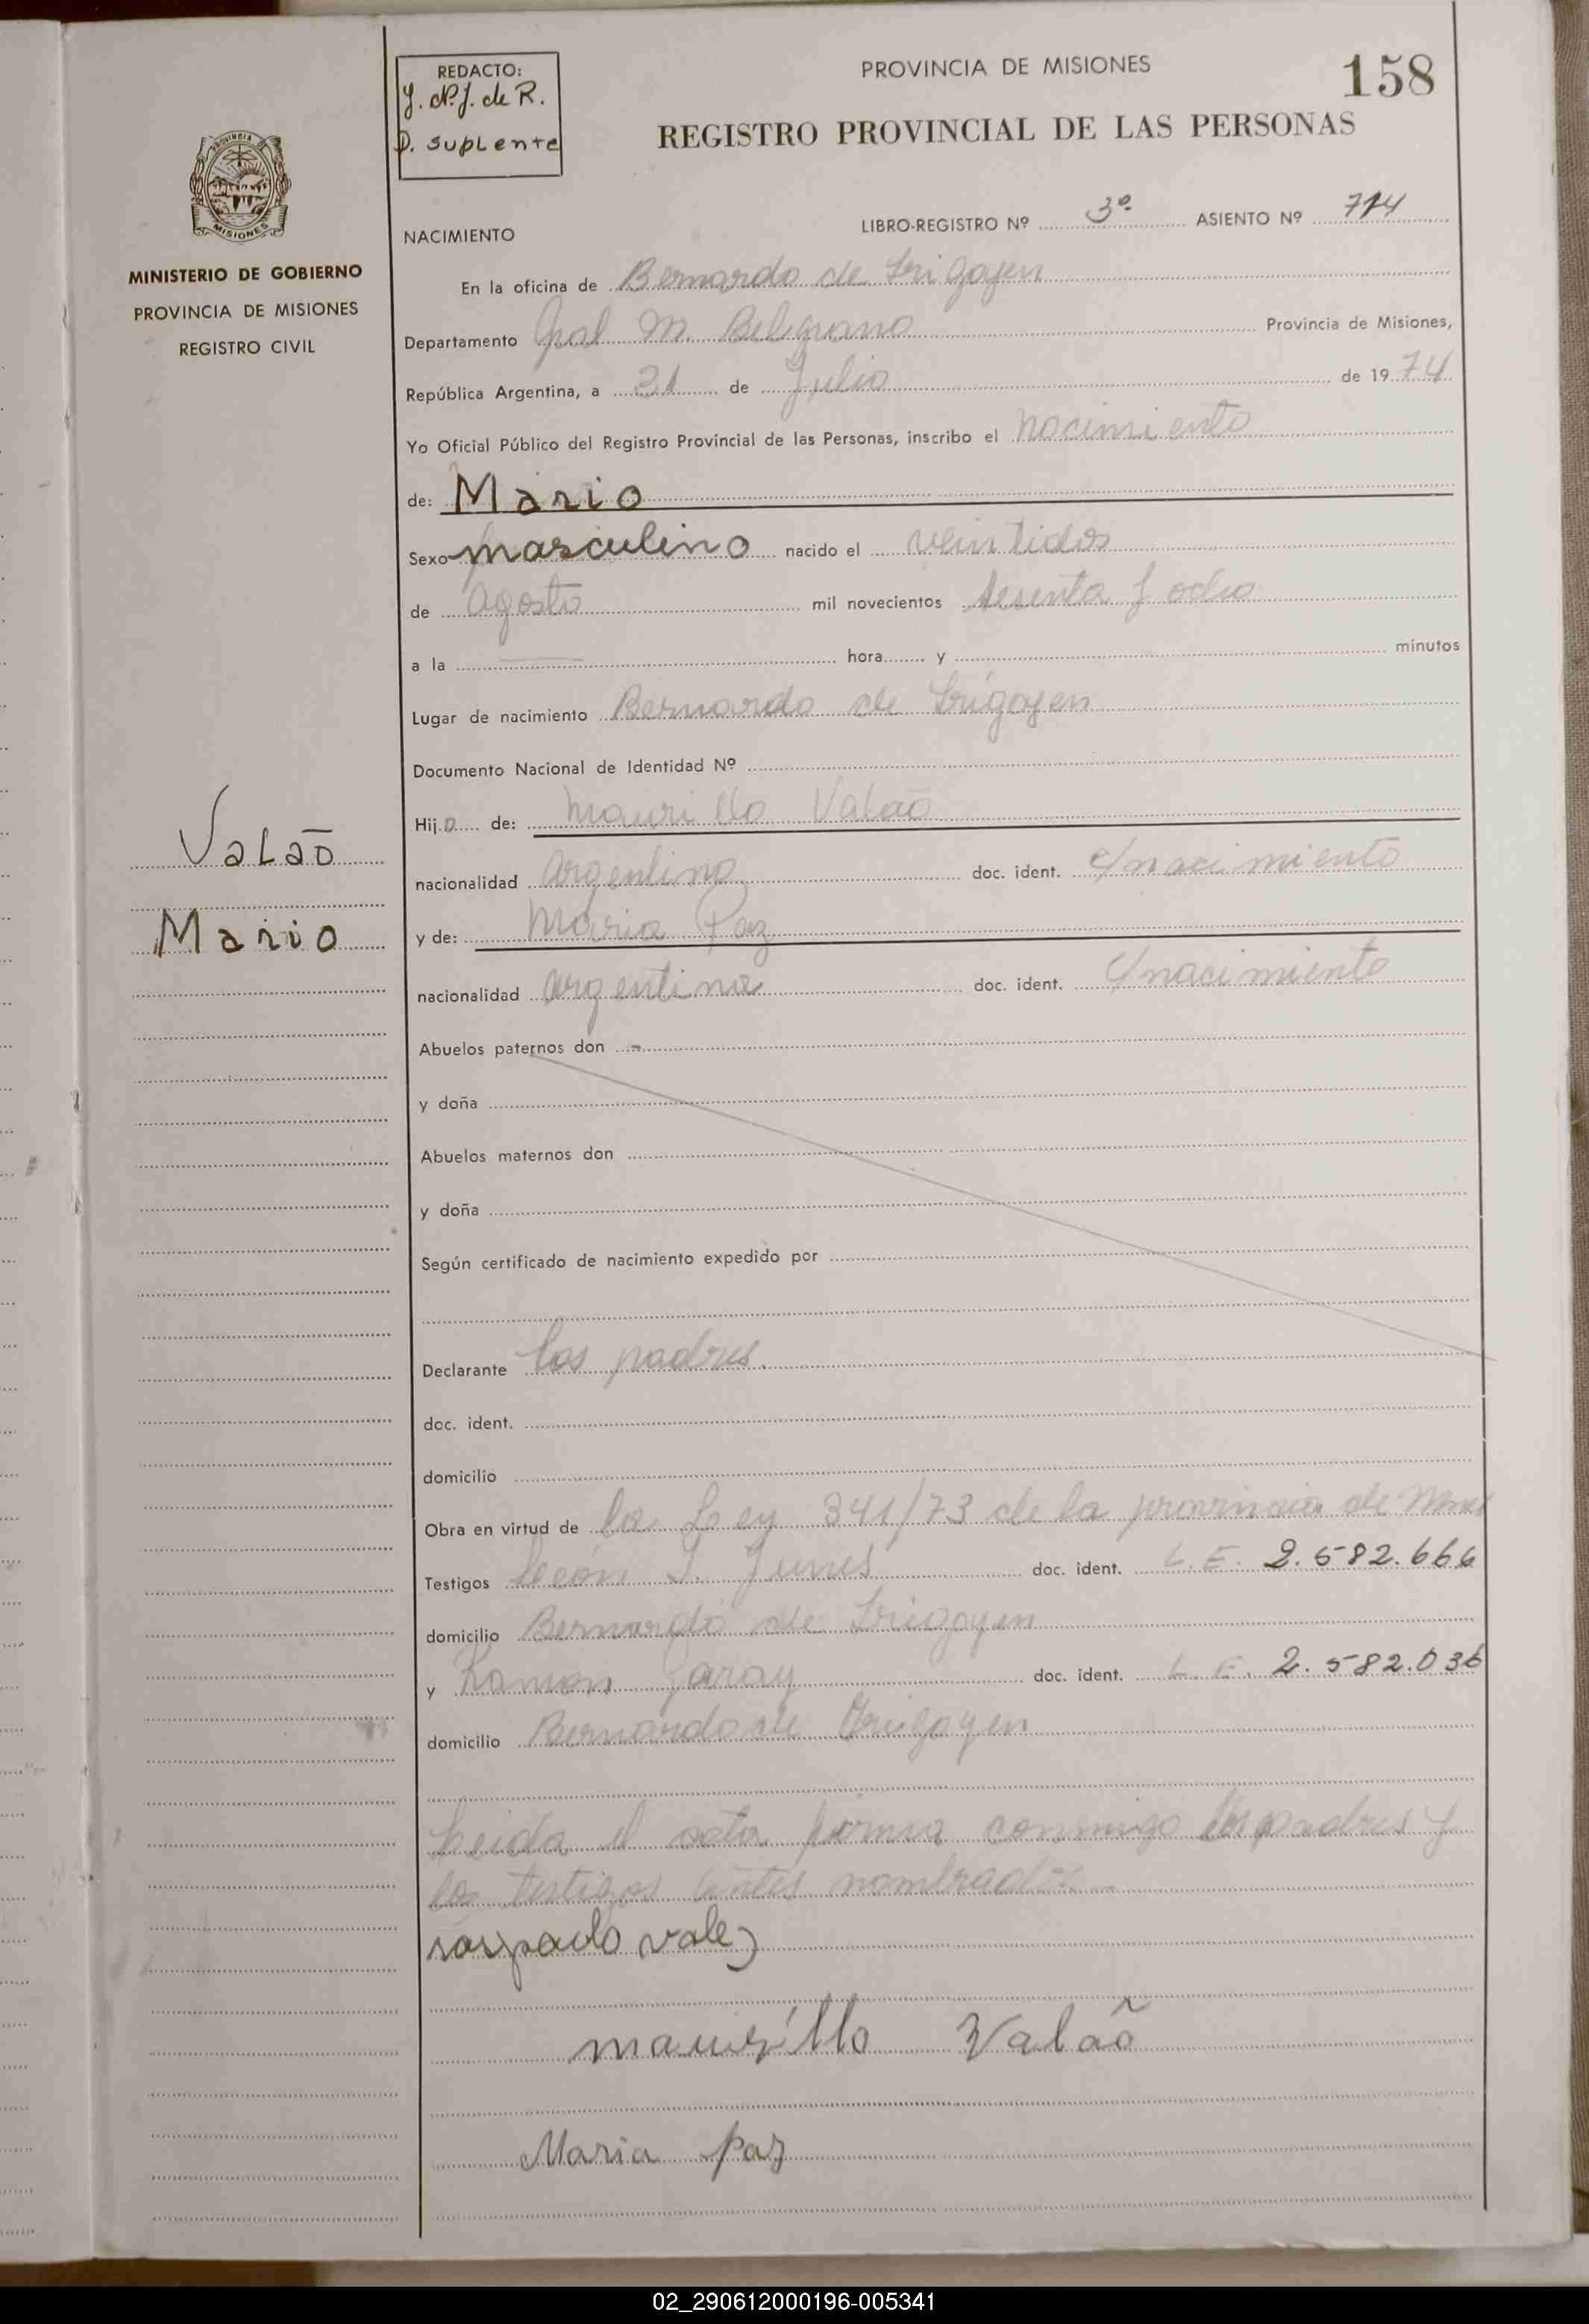 REDACTO:
J. N. J. de R.
D. suplente
PROVINCIA DE MISIONES
158
REGISTRO PROVINCIAL DE LAS PERSONAS
PROVINCIA DE
MISIONES
MINISTERIO DE GOBIERNO
PROVINCIA DE MISIONES
REGISTRO CIVIL
NACIMIENTO
LIBRO-REGISTRO Nº 3º ASIENTO Nº 714
En la oficina de Bernardo de Irigoyen
Departamento Gral M. Belgrano Provincia de Misiones,
República Argentina, a 31 de Julio de 1974
Yo Oficial Público del Registro Provincial de las Personas, inscribo el nacimiento
de: Mario
Sexo masculino nacido el veintidos
de agosto mil novecientos sesenta y ocho
a la hora y minutos
Lugar de nacimiento Bernardo de Irigoyen
Documento Nacional de Identidad Nº
Hijo de: Maurillo Valaõ
Valaõ
nacionalidad argentino doc. ident. c/nacimiento
Mario
y de: Maria Paz
nacionalidad argentina doc. ident. c/nacimiento
Abuelos paternos don
y doña
Abuelos maternos don
y doña
Según certificado de nacimiento expedido por
Declarante los padres
doc. ident.
domicilio
Obra en virtud de la Ley 341/73 de la provincia de
Testigos doc. ident. L. E. 2.582.666
domicilio Bernardo de Irigoyen
y Ramon Garay doc. ident. L. E. 2.582.036
domicilio Bernardo de Irigoyen
Leida el acta firma conmigo los padres y
los testigos antes nombrados
raspado vale
maurillo Valaõ
Maria paz
02_290612000196-005341